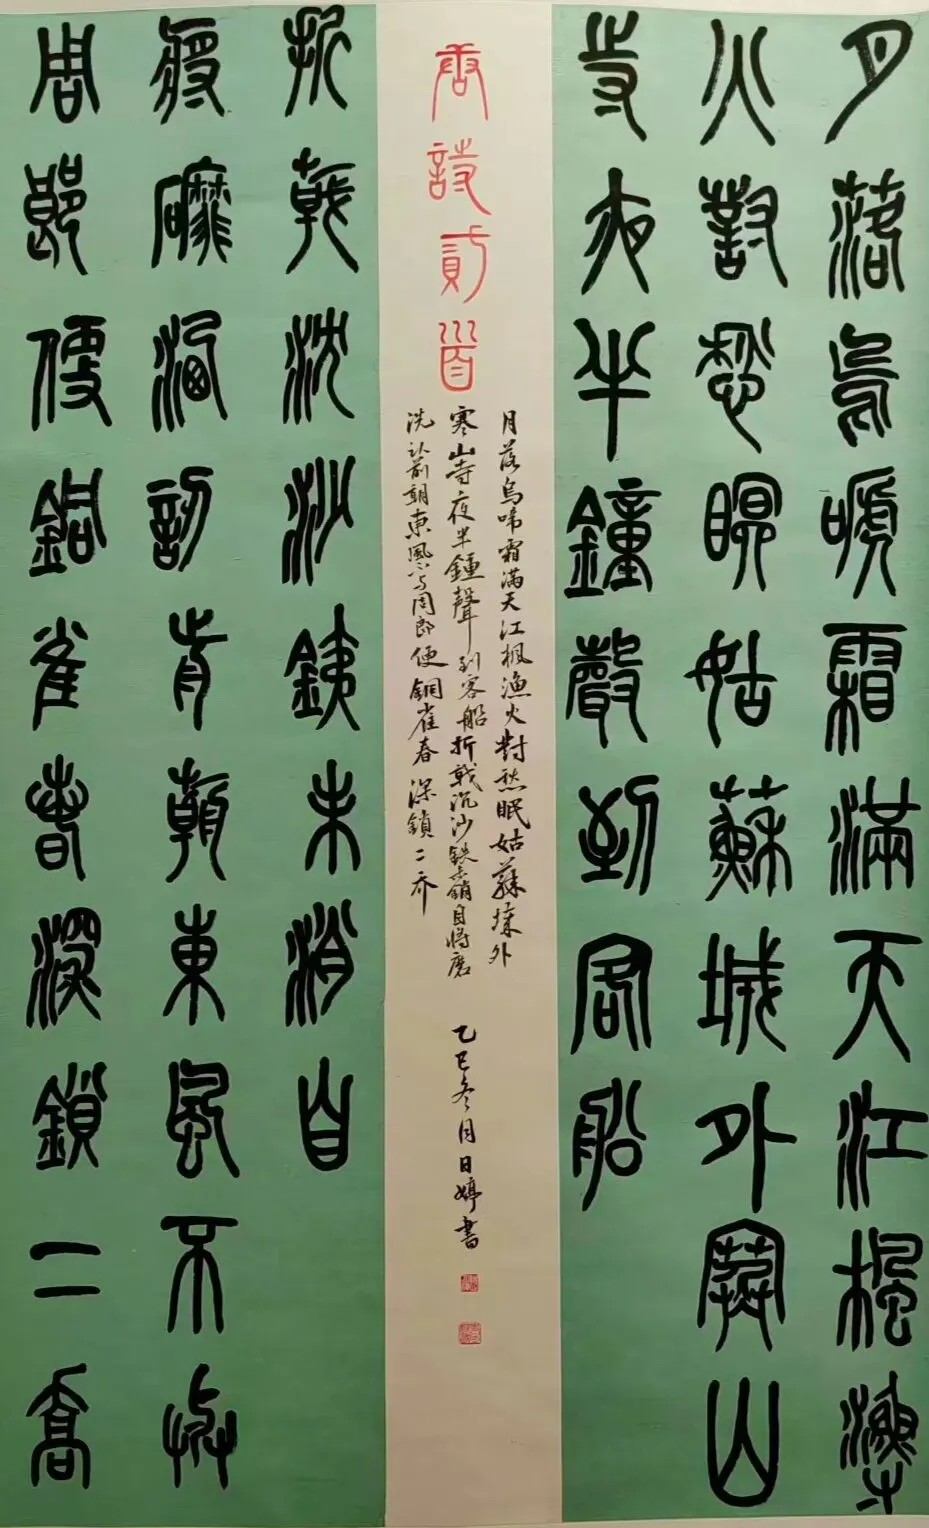 月落烏嗁霜滿天江楓漁
火對愁眠姑蘇城外寒山
寺夜半鐘聲到客船
唐詩貳首
月落烏啼霜满天江楓漁火對愁眠姑蘇城外
寒山寺夜半鍾聲到客船折戟沉沙鉄未銷自將磨
洗认前朝東風不与周郎便銅雀春深鎖二乔
乙巳冬月日婷書
折戟沈沙銕未消自
將磨洗認前朝東風不與
周郎便銅雀春深鎖二喬